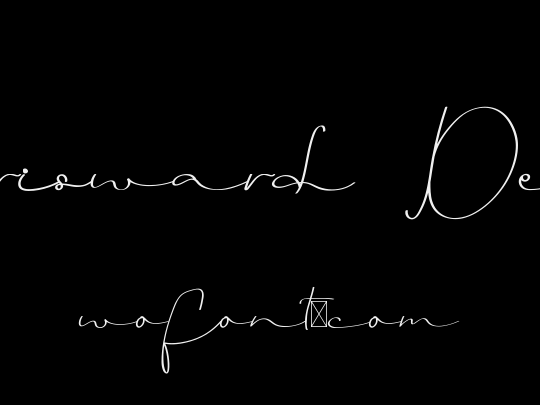 risward De
wofont☒com